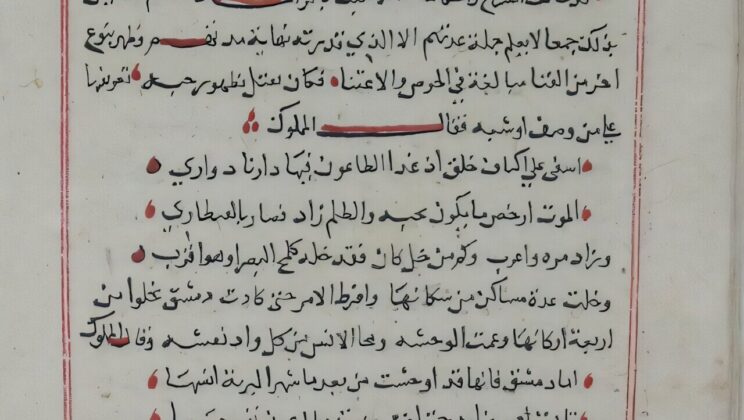 بذلك جمعا لا يعلم جملة عدتهم الا الذي قدرته نهاية مد نفسهم وظهر بنوع
اخر من الفنا مبالغة في الحرص والاعتنا فكان يعتل بظهور حبه تعوىفها
علي من وصف او شبه فقال المملوك
اسفى علي اكناف خلق اذ غدا الطاعون فيها دارنا د واري
الموت ارخص ما يكون بحبه والظلم زاد فصار بالقنطاري
وزاد مره واعرب وكم من خل كان فقد خله كلمح البصر او هو اقرب
وخلت عدة مساكن من سكانها وافرط الامر حتى كادت دمشق تخلوا من
اربعة اركانها وعمت الوحشه ومحا الانس من كل واد نعشه وقال المملوك
اما دمشق فانها قد اوحشت من بعد ما شهد البرية انسها